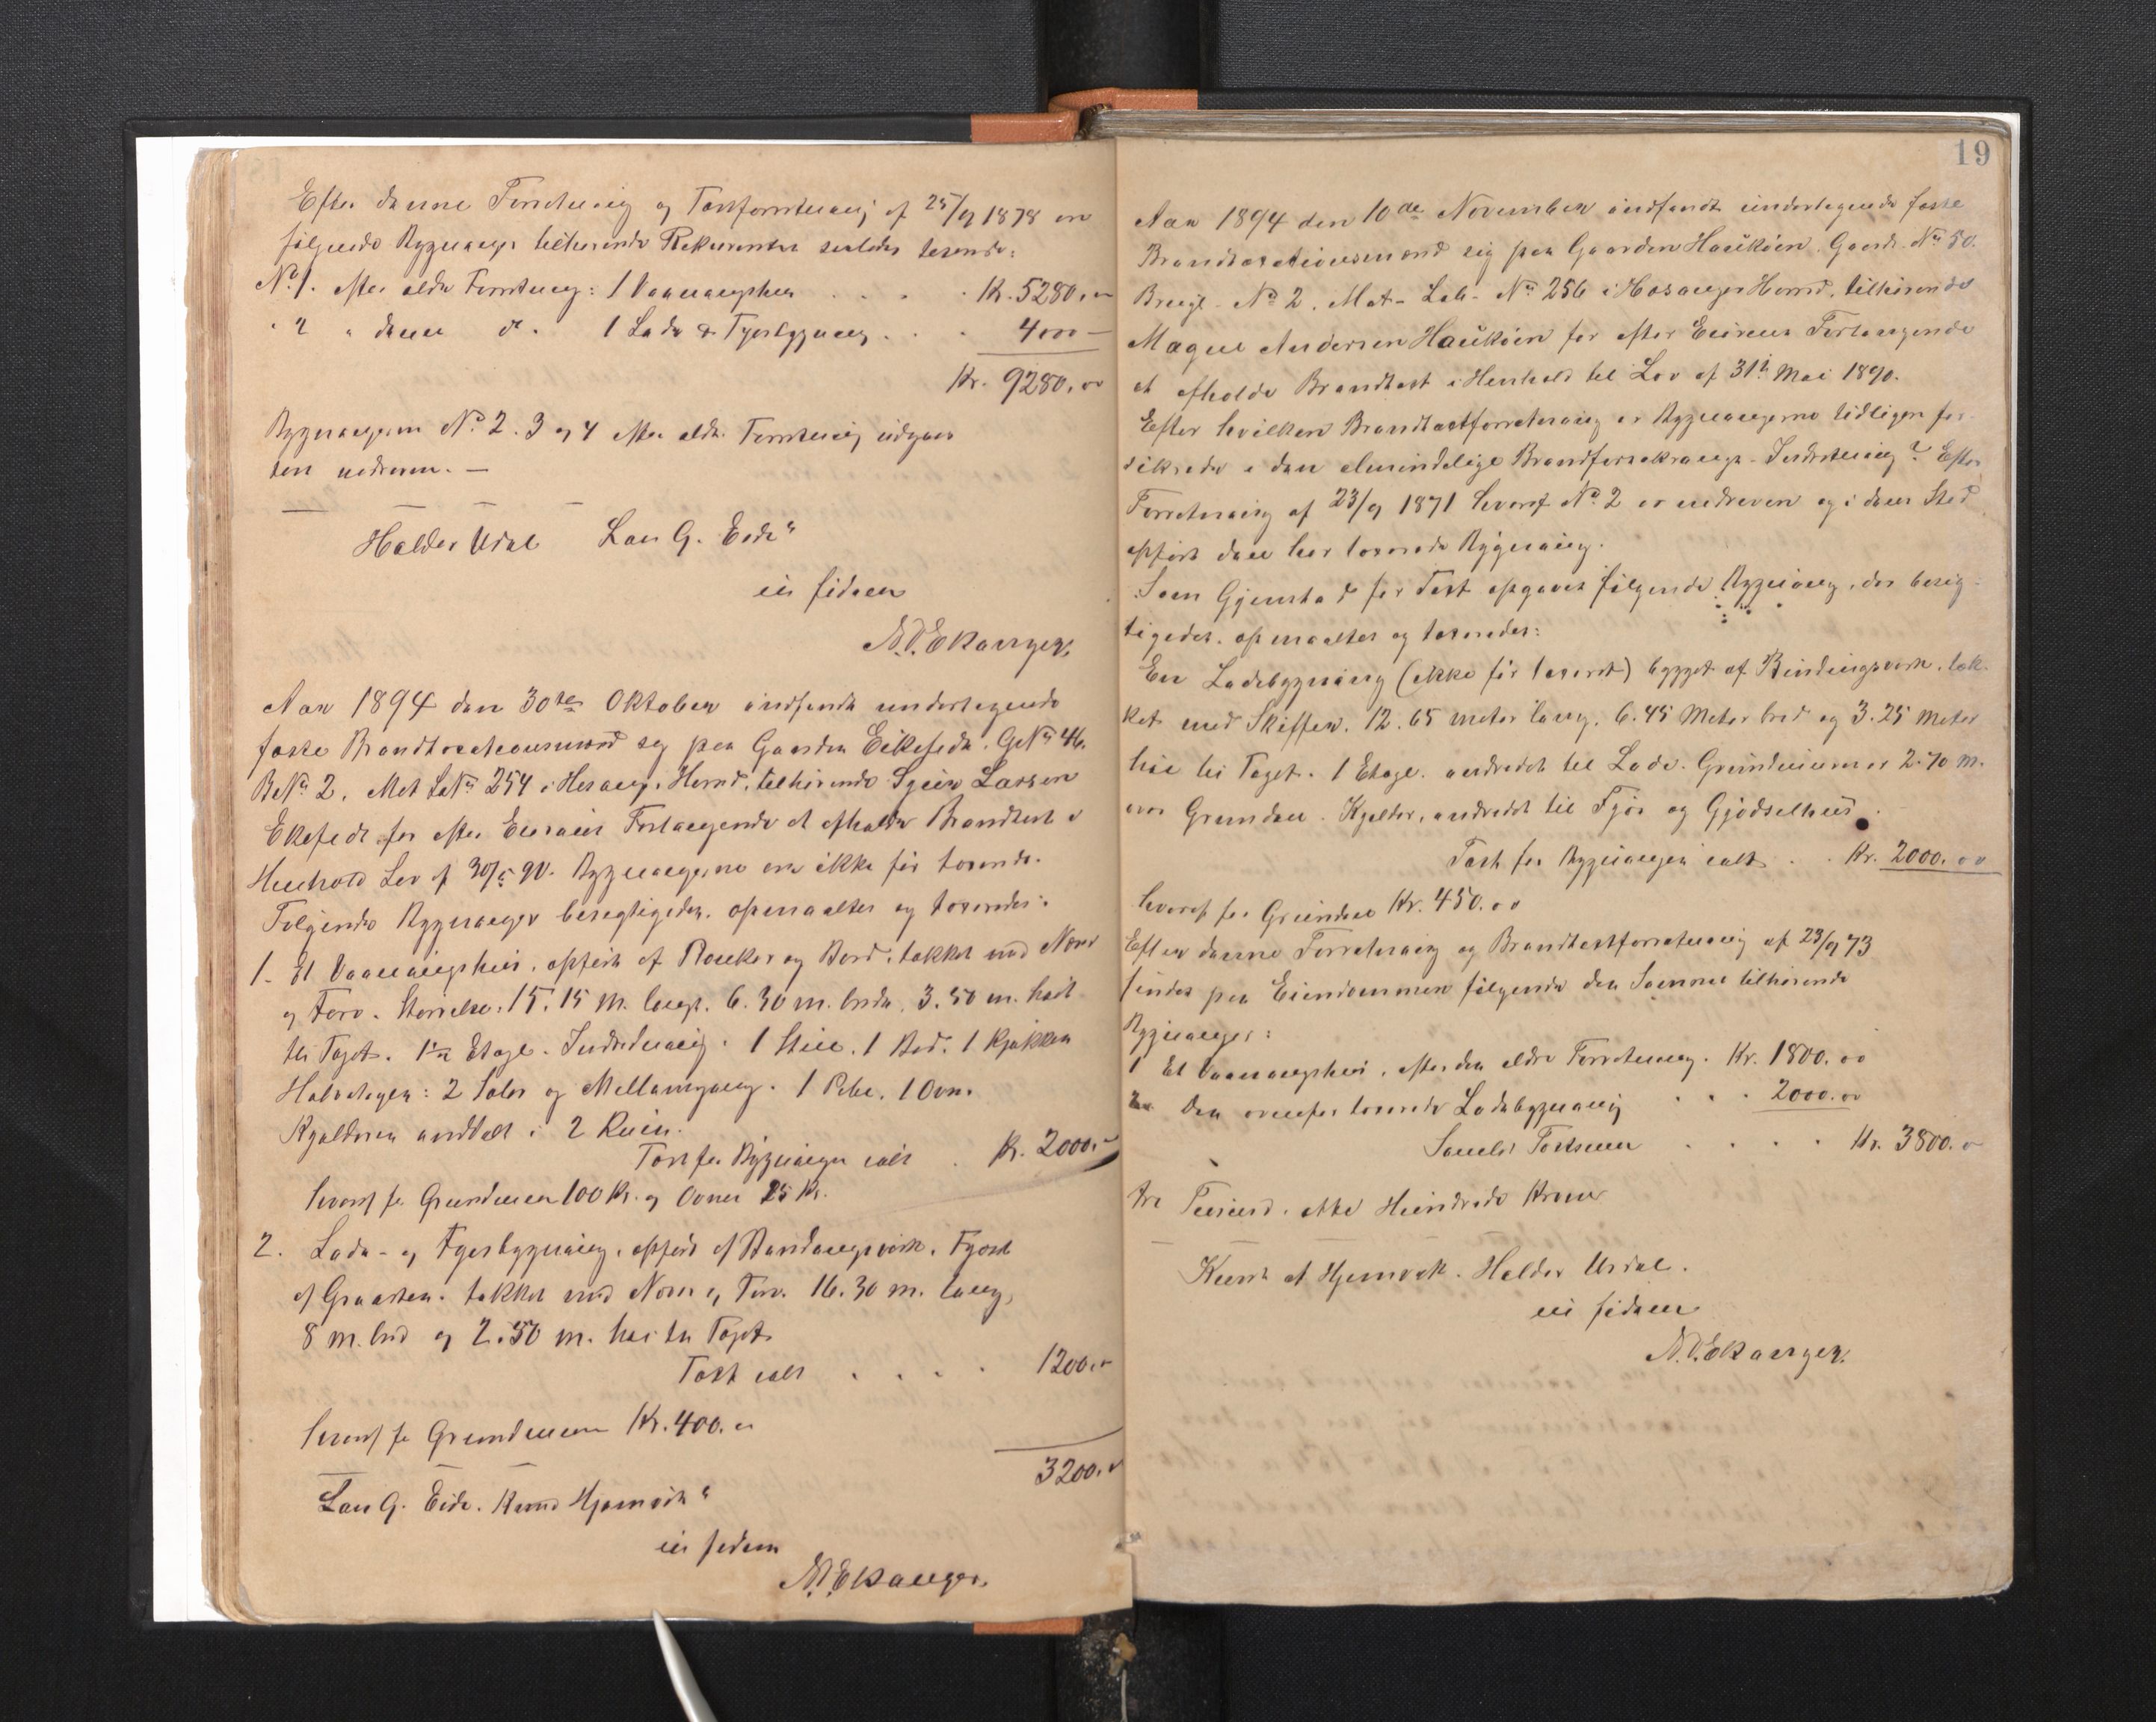 Efter denne Forretning og Taxtforretning af 25/9 1878 ere
følgende Bygninger tilhørende Rekvirenten saaledes taxerede:
No 1. efter ældre Forretning: 1 Vaaningshus . . . . Kr. 5280,00
" 2 " denne do. 1 Lade & Fjøsbygning . . . 4000 —
Kr. 9280,00
Bygningerne No 2. 3 og 4 efter ældre Forretning udgaar
som nedrevne. —
Haldor Urdal Lars G. Eide
in fidem
N. D. Ekanger.
Aar 1894 den 30te Oktober indfandt undertegnede
faste Brandtaxationsmænd sig paa Gaarden Eikefedt. G No 46.
B No 2. Mat L No 254 i Hosanger Herred, tilhørende Sjur Larsen
Ekefedt for efter Eierens Forlangende at afholde Brandtaxt i
Henhold Lov af 30/5 90. Bygningerne ere ikke før taxerede.
Følgende Bygninger besigtigedes, opmaaltes og taxeredes:
1. Et Vaaningshus, opført af Planker og Bord, tækket med Næver
og Torv. Størrelse: 15.15 m. længd. 6.30 m. brede. 3.50 m. høit
til Taget. 1ste Etage. Indredning: 1 Stue. 1 Bod. 1 Kjøkken
Halvetagen: 2 Saler og Mellemgang. 1 Pibe. 1 Ovn.
Kjælderen inddelt i 2 Rum.
Taxt for Bygningen ialt . Kr. 2000.00
hvoraf for Grundmuren 100 Kr. og Ovnen 25 Kr.
2. Lade- og Fjøsbygning, opført af Bindingsværk, Fjøset
af Graasten. tækket med Næver og Torv. 16.30 m. lang,
8 m. bred og 2.50 m. høi til Taget
Taxt ialt . . . . 1200.00
hvoraf for Grundmuren Kr. 400.00
3200.00
Lars G. Eide. Knud Hjemvik
in fidem
N. D. Ekanger.
19
Aar 1894 den 10de November indfandt undertegnede faste
Brandtaxationsmænd sig paa Gaarden Haukøen. Gaards-No 50.
Brugs-No 2. Mat-Løb-No 256 i Hosanger Herred, tilhørende
Magne Andersen Haukøen for efter Eierens Forlangende
at afholde Brandtaxt i Henhold til Lov af 31te Mai 1890.
Efter hvilken Brandtaxtforretning er Bygningerne tidligere for-
sikrede i den almindelige Brandforsikrings-Indretning? Efter
Forretning af 23/9 1871 hvoraf No 2 er nedreven og i dens Sted
opført den her taxerede Bygning.
Som Gjenstad for Taxt opgaves følgende Bygning, der besig-
tigedes, opmaaltes og taxeredes:
En Ladebygning (ikke før taxeret) bygget af Bindingsværk, tæk-
ket med Skiffer. 12.65 meter lang, 6.45 Meter bred og 3.25 Meter
høi til Taget. 1 Etage. indredet til Lade. Grundmuren er 2.70 m.
over Grunden. Kjælder, indredet til Fjøs og Gjødselhus.
Taxt for Bygningen ialt . . Kr. 2000.00
hvoraf for Grunden Kr. 450.00
Efter denne Forretning og Brandtaxtforretning af 23/9 73
findes paa Eiendommen følgende den Samme tilhørende
Bygninger:
1 Et Vaaningshus, efter den ældre Forretning. Kr. 1800.00
2. Den ovenfor taxerede Ladebygning . . . 2000.00
Samlet Taxtsum . . . . Kr. 3800.00
tre Tusind, otte Hundrede Kroner
Knud A Hjemvik. Haldor Urdal.
in fidem
N. D. Ekanger.